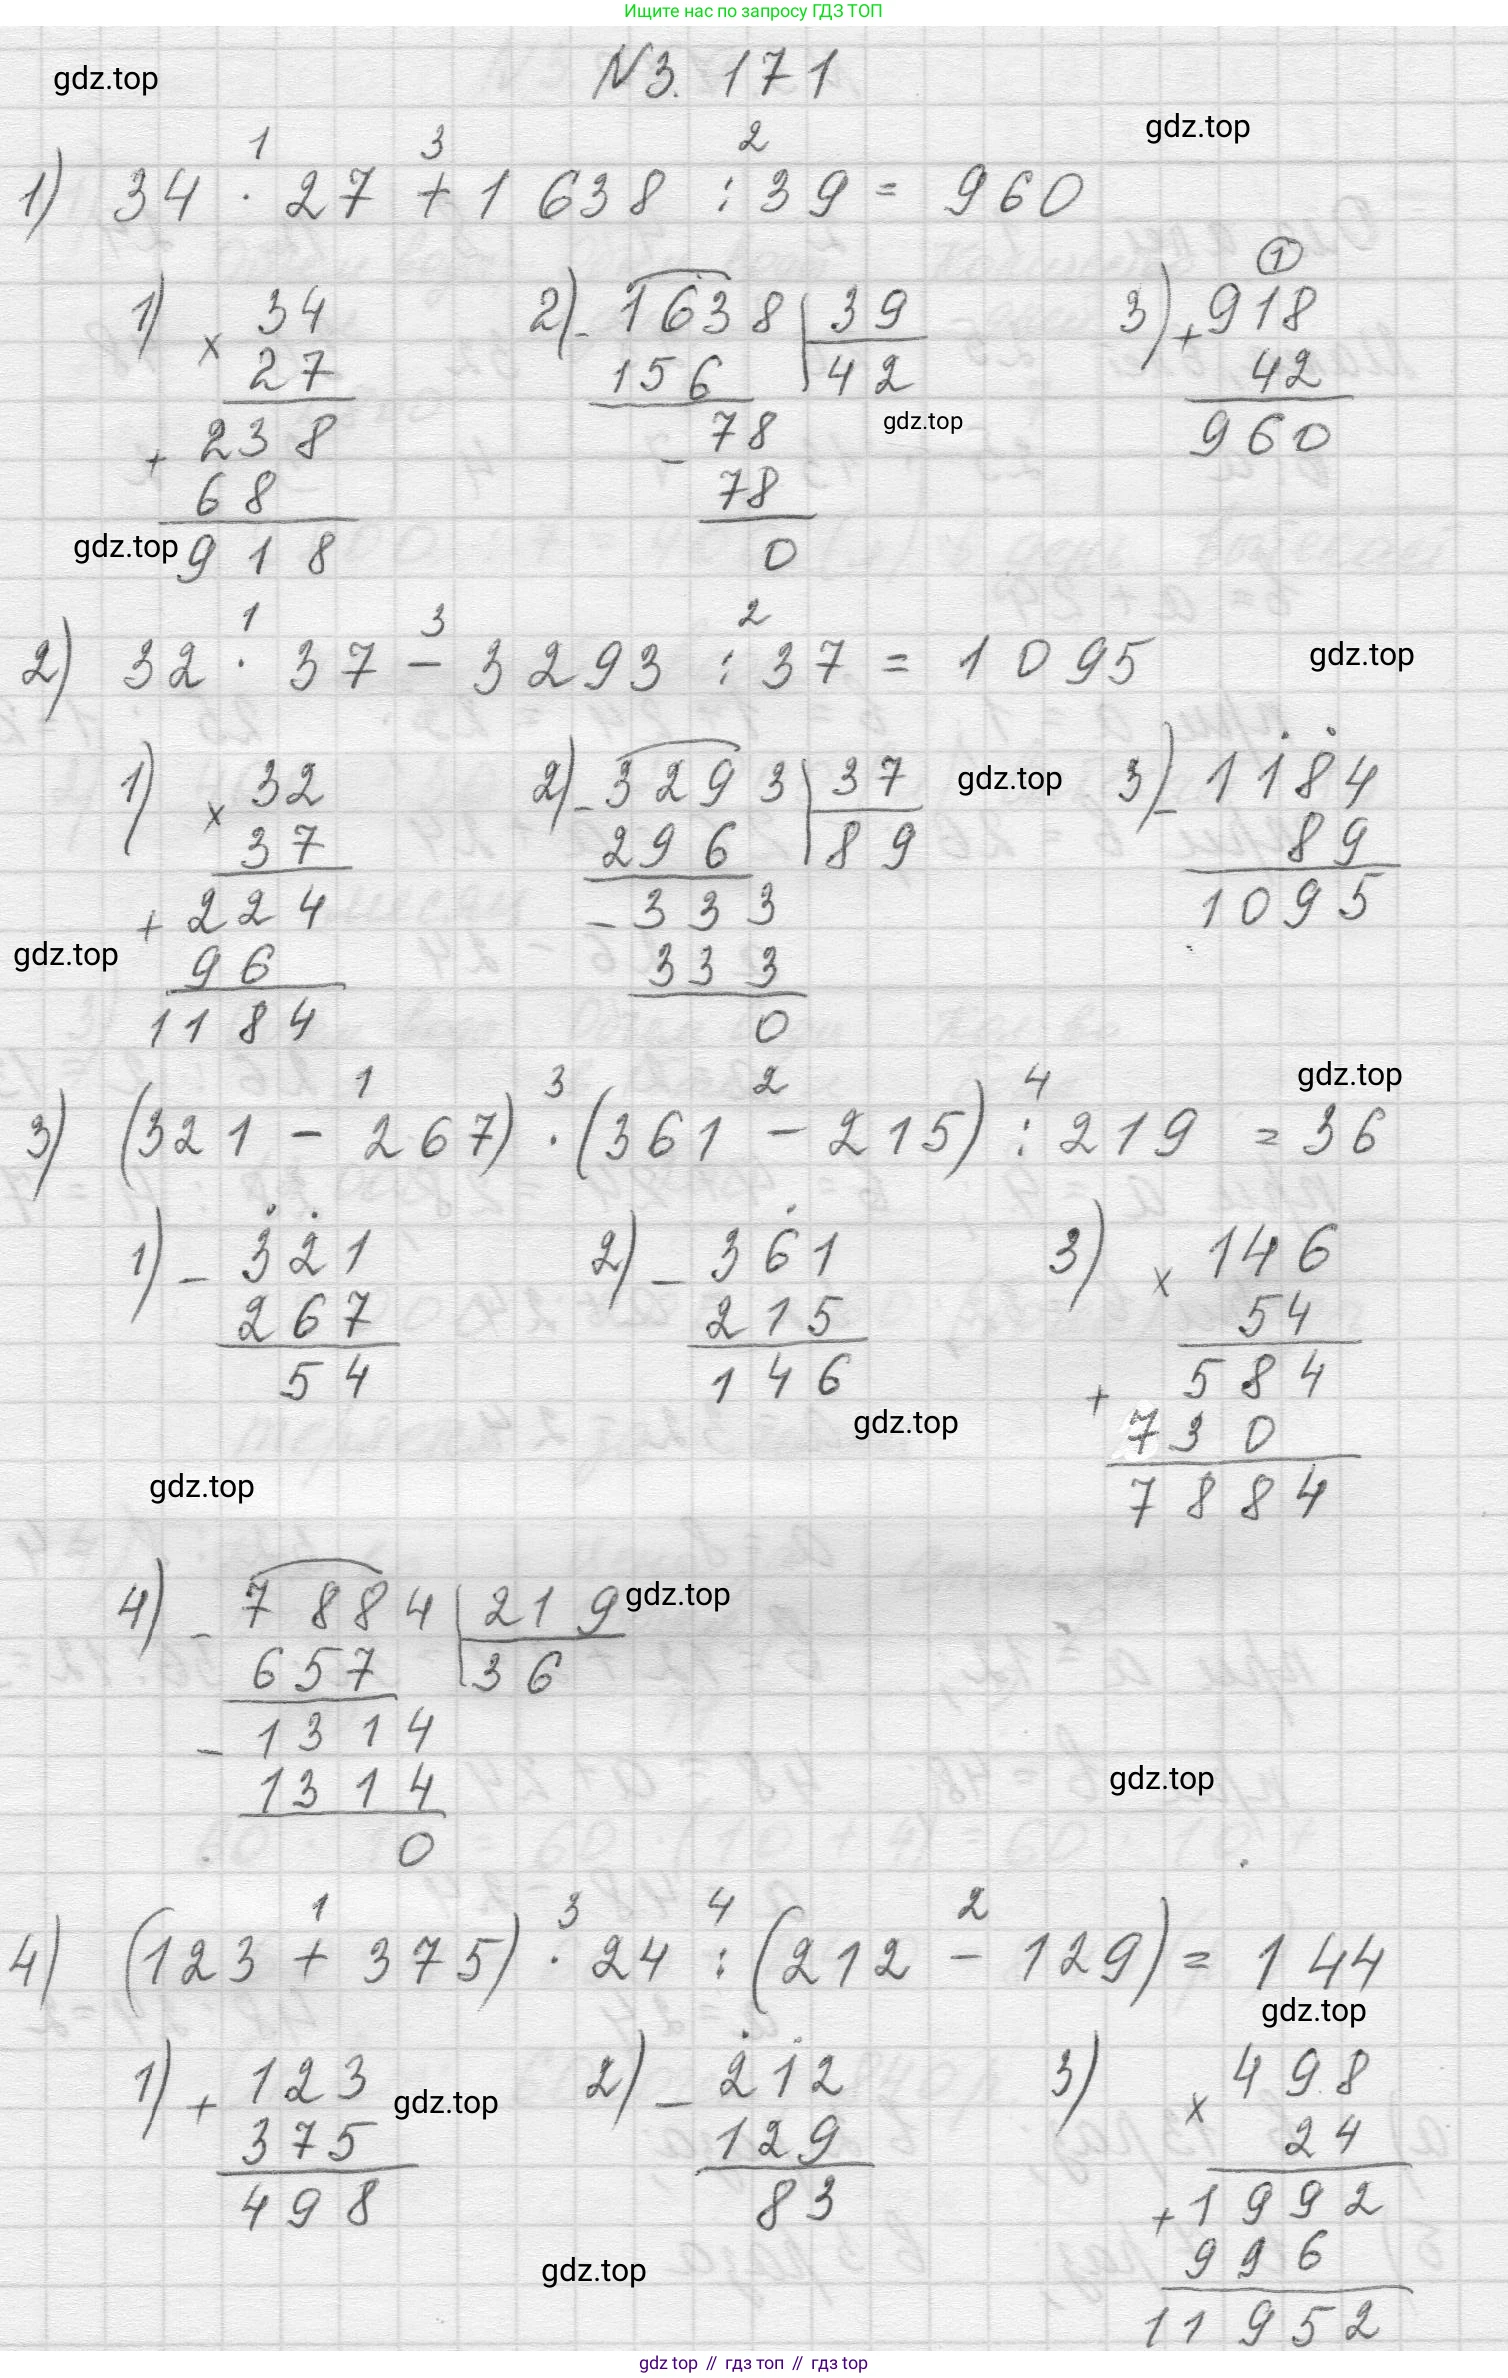 Ищите нас по запросу ГДЗ ТОП
N3. 171
gdz.top
gdz.top
1 3 2
1) 34 · 27 + 1 638 : 39 = 960
1) × 34
27
+ 238
68
918
2) - 1638 | 39
156 | 42
- 78
78
0
gdz.top
1
3) + 918
42
960
gdz.top
1 3 2
2) 32 · 37 - 3293 : 37 = 1 095
gdz.top
1) × 32
37
+ 224
96
1184
2) - 3293 | 37
296 | 89
- 333
333
0
gdz.top
3) - 1184
89
1095
gdz.top
gdz.top
1 3 2 4
3) (321 - 267) · (361 - 215) : 219 = 36
1) - 321
267
54
2) - 361
215
146
3) × 146
54
+ 584
730
7884
gdz.top
gdz.top
4) - 7884 | 219
657 | 36
- 1314
1314
0
gdz.top
gdz.top
1 3 4 2
4) (123 + 375) · 24 : (212 - 129) = 144
gdz.top
1) + 123
375
498
gdz.top
2) - 212
129
83
3) × 498
24
+ 1992
996
11952
gdz.top
gdz top // гдз топ // гдз top